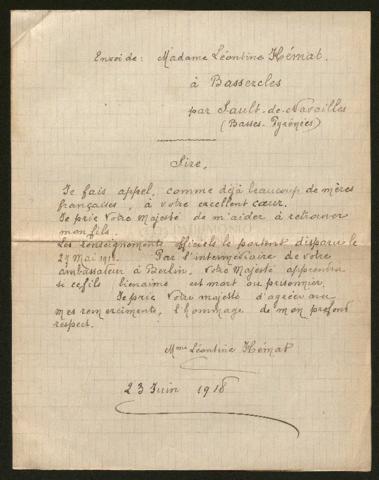 Envoi de: Madame Léontine Hémat.
à Bassercles
par Sault-de-Navailles
(Basses-Pyrénées)
Sire,
Je fais appel, comme déjà beaucoup de mères
françaises, à votre excellent cœur.
Je prie Votre Majesté de m'aider à retrouver
mon fils.
Les renseignements officiels le portent disparu le
27 Mai 1918. Par l'intermédiaire de votre
ambassadeur à Berlin, Votre Majesté apprendra
si ce fils bienaimé est mort ou prisonnier.
Je prie Votre majesté d'agréer avec
mes remerciments, l'hommage de mon profond
respect.
Mme Léontine Hémat
23 Juin 1918